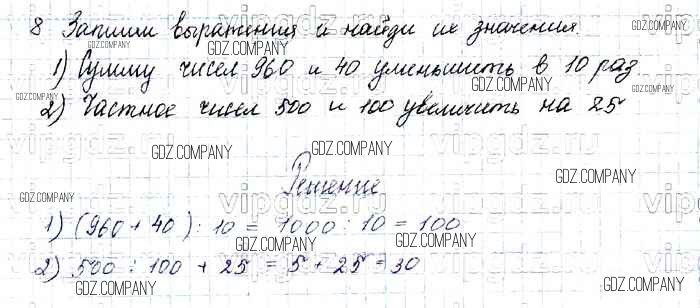 8 Запиши выражения и найди их значения.
1) Сумму чисел 960 и 40 уменьшить в 10 раз.
2) Частное чисел 500 и 100 увеличить на 25
Решение
1) (960 + 40) : 10 = 1000 : 10 = 100
2) 500 : 100 + 25 = 5 + 25 = 30
GDZ.COMPANY
vipgdz.ru